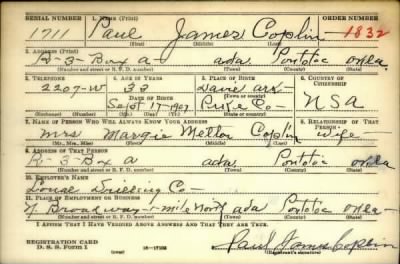 SERIAL NUMBER 1. NAME (Print) ORDER NUMBER
1711 Paul James Coplin 1832
(First) (Middle) (Last)
2. ADDRESS (Print)
R-3-Box a- ada, Pontotoc okla.
(Number and street or R. F. D. number) (Town) (County) (State)
3. TELEPHONE 4. AGE IN YEARS 5. PLACE OF BIRTH 6. COUNTRY OF CITIZENSHIP
2207-W 33 ark-
DATE OF BIRTH
Sept 17-1907 Pike Co- USA
(Exchange) (Number) (Mo.) (Day) (Yr.) (State or country)
7. NAME OF PERSON WHO WILL ALWAYS KNOW YOUR ADDRESS 8. RELATIONSHIP OF THAT PERSON
Mrs Margie Coplin wife-
(Mr., Mrs., Miss) (First) (Middle) (Last)
9. ADDRESS OF THAT PERSON
R-3-Box a ada, Pontotoc okla
(Number and street or R. F. D. number) (Town) (County) (State)
10. EMPLOYER'S NAME
Drilling Co-
11. PLACE OF EMPLOYMENT OR BUSINESS
N Broadway-1-mile North ada Pontotoc Okla-
(Number and street or R. F. D. number) (Town) (County) (State)
I AFFIRM THAT I HAVE VERIFIED ABOVE ANSWERS AND THAT THEY ARE TRUE.
REGISTRATION CARD
D. S. S. Form 1 Paul James Coplin
(Registrant's signature)